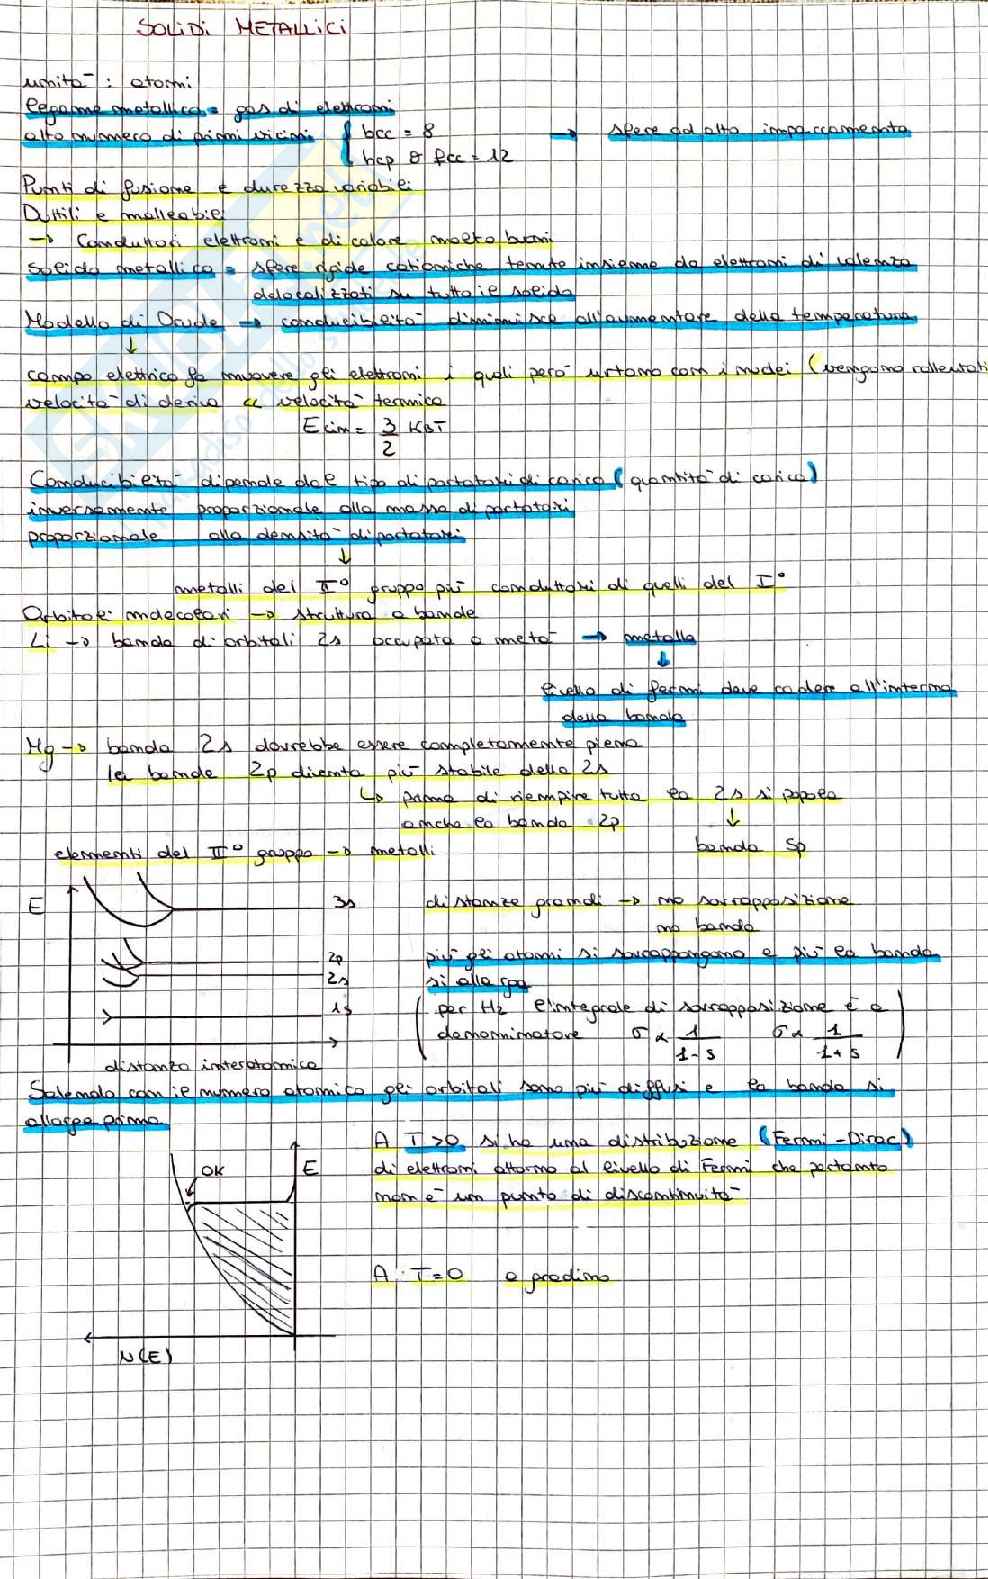 SOLIDI METALLICI
unità : atomi
legame metallico = gas di elettroni
alto numero di primi vicini { bcc = 8 → sfere ad alto impaccamento
hcp e fcc = 12
Punti di fusione e durezza variabili
Duttili e malleabili
→ Conduttori elettroni e di calore molto buoni
Solido metallico = sfere rigide cationiche tenute insieme da elettroni di valenza
delocalizzati su tutto il solido
Modello di Drude → conducibilità diminuisce all'aumentare della temperatura
↓
campo elettrico fa muovere gli elettroni i quali però urtano con i nuclei (vengono rallentati
velocità di deriva << velocità termica
Ecin = 3/2 KBT
Conducibilità dipende dal tipo di portatori di carica (quantità di carica)
inversamente proporzionale alla massa di portatori
proporzionale alla densità di portatori
↓
metalli del II° gruppo più conduttori di quelli del I°
Orbitali molecolari → struttura a bande
Li → banda di orbitali 2s occupata a metà → metallo
↓
livello di fermi deve cadere all'interno
della banda
Mg → banda 2s dovrebbe essere completamente piena
la banda 2p diventa più stabile della 2s
↳ prima di riempire tutta la 2s si popola
anche la banda 2p ↓
elementi del II° gruppo → metalli banda sp
E 3s distanze grandi → no sovrapposizione
no banda
2p più gli atomi si sovrappongono e più la banda
2s si allarga
1s (per H2 l'integrale di sovrapposizione è a
denominatore σ ∝ 1/1-s σ ∝ 1/1+s)
distanza interatomica
Salendo con il numero atomico gli orbitali sono più diffusi e la banda si
allarga prima
A T>0 si ha una distribuzione (Fermi-Dirac)
0K E di elettroni attorno al livello di Fermi che pertanto
non è un punto di discontinuità
A T=0 a gradino
N(E)